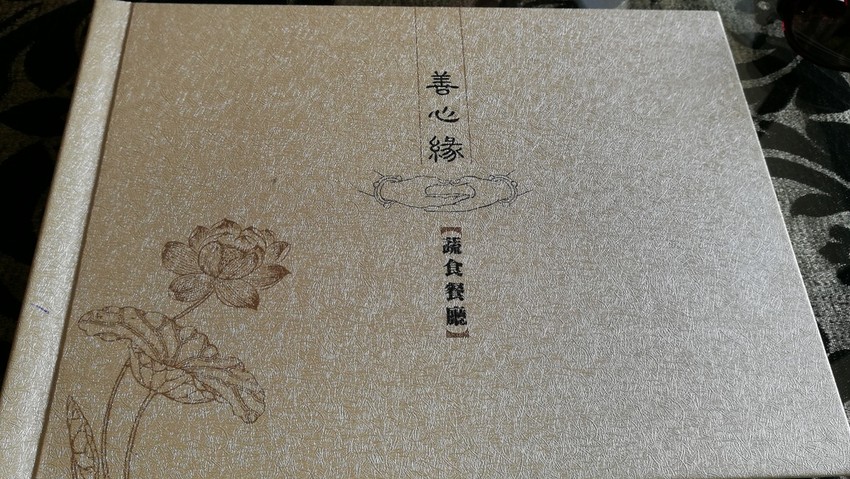 善心緣
【蔬食餐廳】